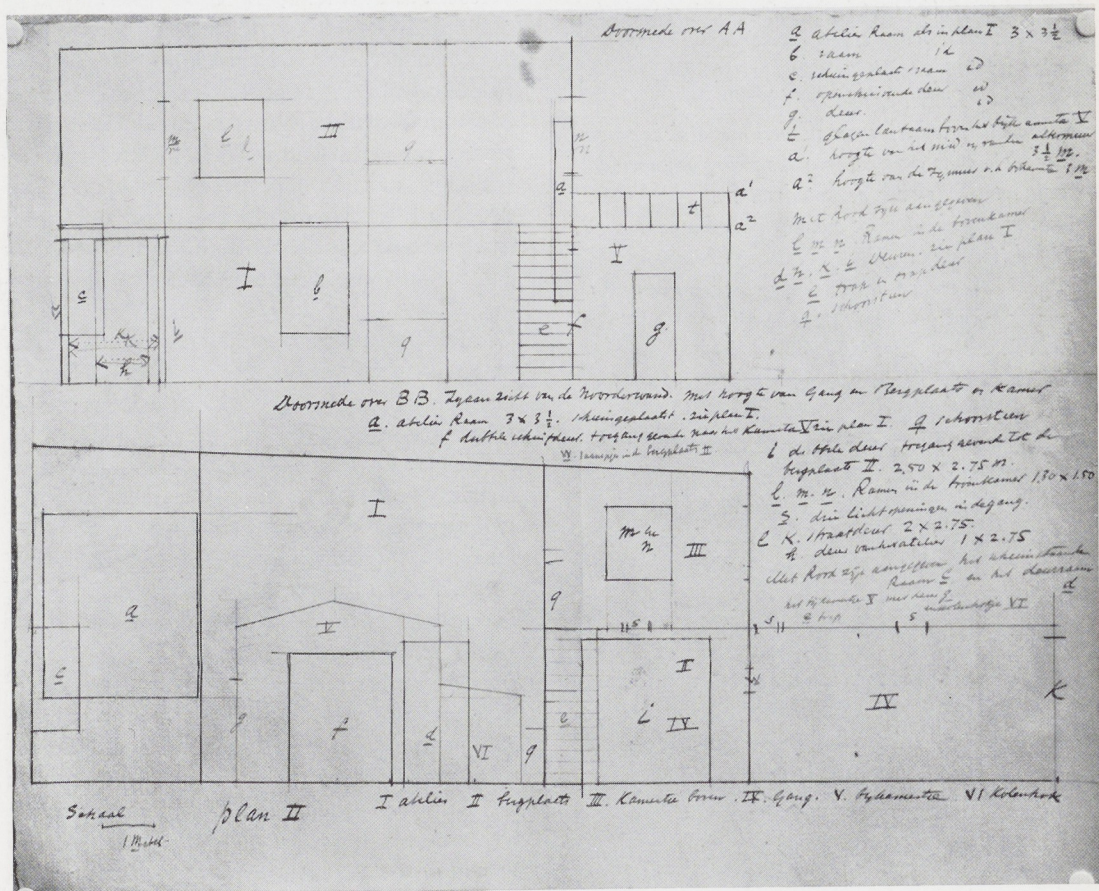 Doorsnede over AA
a atelier Raam als in plan I 3 x 3½
b. raam id
c. scheingeplaatst raam id
f. openschuivende deur id
g. deur. id
t glazen lantaarn boven het bijkamertje V
a' hoogte van het 3½ M.
a² hoogte van de zijmuur v.h. 3 M
Met Rood zijn aangegeven
l m n. Ramen in de bovenkamer
deuren. zie plan I
e trap en trapdeur
q. schoorsteen
l
III
q
a
n
t
a'
a²
c
I
b
V
e f
g
K
h
q
Doorsnede over BB. van de Noorderwand. Met hoogte van Gang en Bergplaats en Kamer
a. atelier Raam 3 x 3½. scheingeplaatst. zie plan I.
f dubbele schuifdeur. toegang gevende naar het Kamertje V zie plan I. q schoorsteen
w. in de bergplaats II
i dubbele deur toegang gevende tot de
bergplaats II. 2,50 x 2.75 M.
l. m. n. Ramen in de bovenkamer 1.30 x 1.50
s. drie lichtopeningen in de gang.
K. straatdeur 2 x 2.75.
h. deur van het atelier 1 x 2.75
Met Rood zijn aangegeven het
Raam c en het deurraam
d
het bijkamertje V met deur g
e trap kolenhokje VI
I
m en
n
III
a
V
q
s
s
s
c
II
g
f
d
VI
q
e
i
IV
IV
K
Schaal
1 Meter
plan II
I atelier II bergplaats III. Kamertje boven. IV. Gang. V. bijkamertje VI Kolenhok